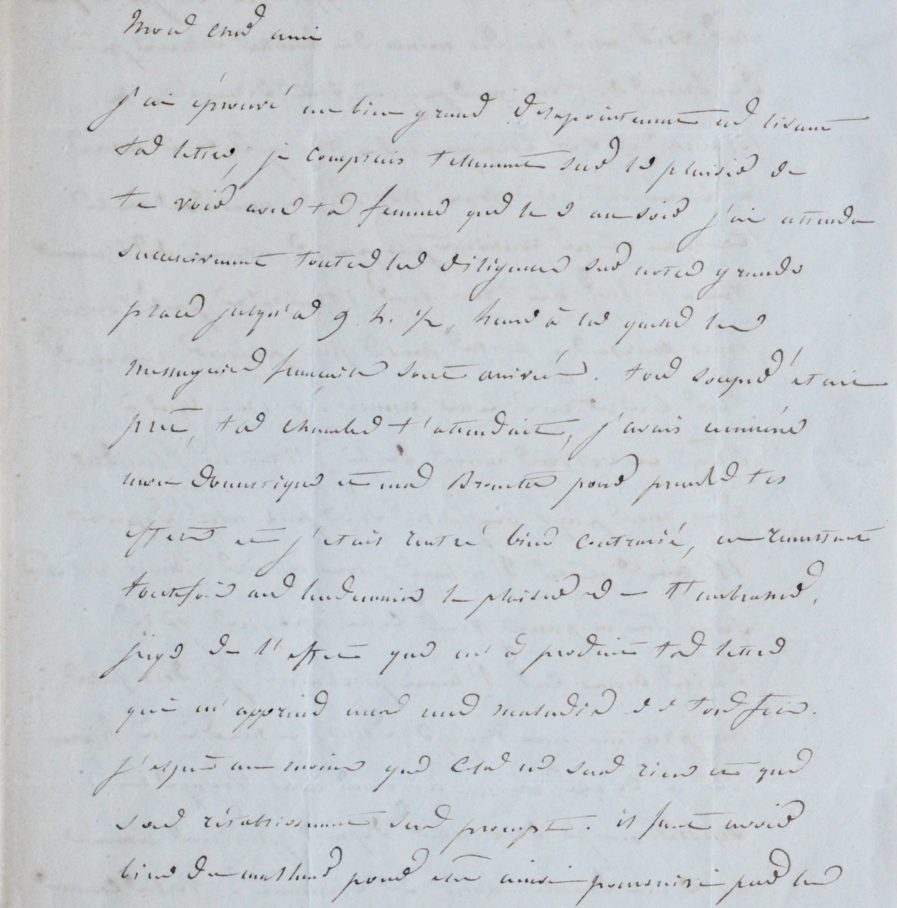 Mon cher ami
J'ai éprouvé un bien grand désapointement en lisant
ta lettre, je comptais tellement sur le plaisir de
te voir avec ta femme que le 2 au soir j'ai attendu
successivement toutes les diligences sur notre grande
place jusqu'à 9 h. 1/2, heure à laquelle les
messageries françaises sont arrivées. ton souper était
prêt, ta chambre t'attendait, j'avais emmené
mon domestique et ma pour prendre tes
effets et j'étais rentré bien contrarié, en remettant
toutefois au lendemain le plaisir de t'embrasser.
juge de l'effet que m'a produit ta lettre
qui m'apprend une maladie de ton
j'espère au moins que cela ne sera rien et que
son rétablissement sera prompt. il faut avoir
bien du malheur pour être ainsi poursuivi par les